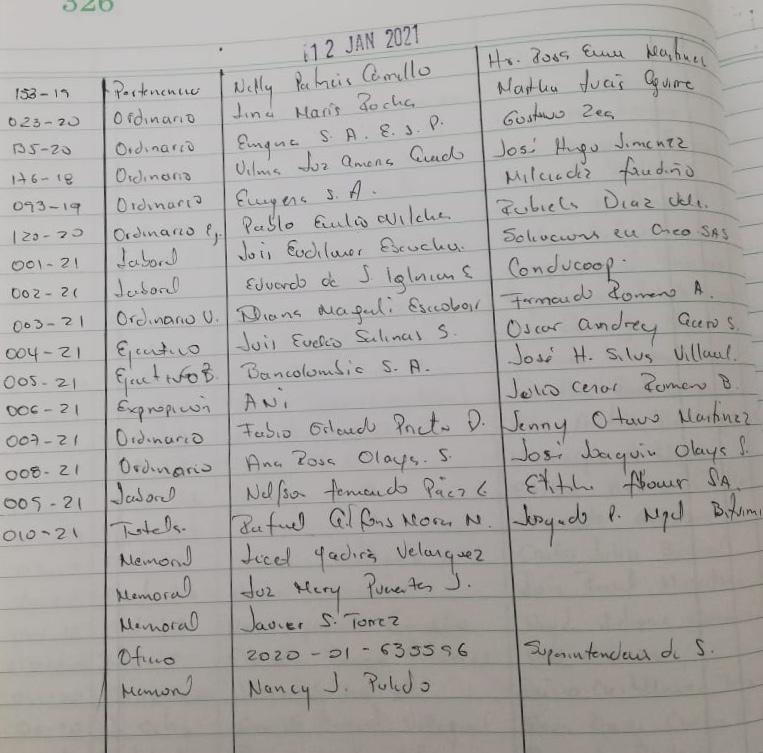 326
12 JAN 2021
153-19 Pertenencia Nelly Patricia Carrillo Hr. Rosa Martinez
023-20 Ordinario Lina Maria Rocha Martha Lucia Aguirre
Ordinario Emgesa S.A. E.S.P. Gustavo Zea
176-18 Ordinario Vilma Luz José Hugo Jimenez
093-19 Ordinario Emgesa S.A. Milciades
120-20 Ordinario Ej. Pablo Emilio Vilches Rubiela Diaz
001-21 Laboral Luis Soluciones en SAS
002-21 Laboral Eduardo de J. Conducoop.
003-21 Ordinario V. Diana Magali Escobar Fernando Romero A.
004-21 Ejecutivo Luis Evelio Salinas S. Oscar Andrey Acero S.
005-21 Ejecutivo B. Bancolombia S.A. José H. Silva
006-21 Expropiación ANi Julio Cesar Romero B.
007-21 Ordinario Fabio Orlando Prieto D. Jenny Otavo Martinez
008-21 Ordinario Ana Rosa Olaya. S. José Joaquin Olaya S.
009-21 Laboral Nelson Fernando Páez SA
010-21 Tutela. Rafael Mora N. Juzgado P. Mpal
Memorial Yadira Velasquez
Memorial Luz Mery Puentes J.
Memorial Javier S. Torrez
Oficio 2020-01-635596 Superintendencia de S.
Memorial Nancy J. Pulido